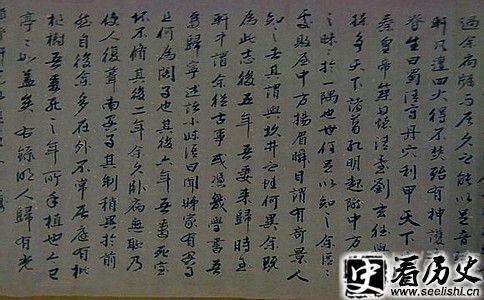 過余扃牖而居久之能以足音
軒凡遭四火得不焚殆有神護
脊生曰蜀清守丹穴利甲天下
秦皇帝築懷清臺劉玄德與
操爭天下諸葛孔明起隴中方
之昧昧於隅也世何足以知之余區區
處敗屋中方揚眉瞬目謂有奇景人
知之者其謂與坎井之蛙何異余既
為此志後五年吾妻來歸時至
軒中謂余從古事或憑几學書吾
妻歸寧述諸小妹語曰聞姊家有閤子
且何為閤子也其後六年吾妻死室
坏不脩其後二年余久臥病無聊乃
使人復葺南閤子其制稍異於前
然自後余多在外不常居庭有枇
杷樹吾妻死之年所手植也今已
亭亭如蓋矣 右錄明人歸有光
史看历史
www.seelishi.cn